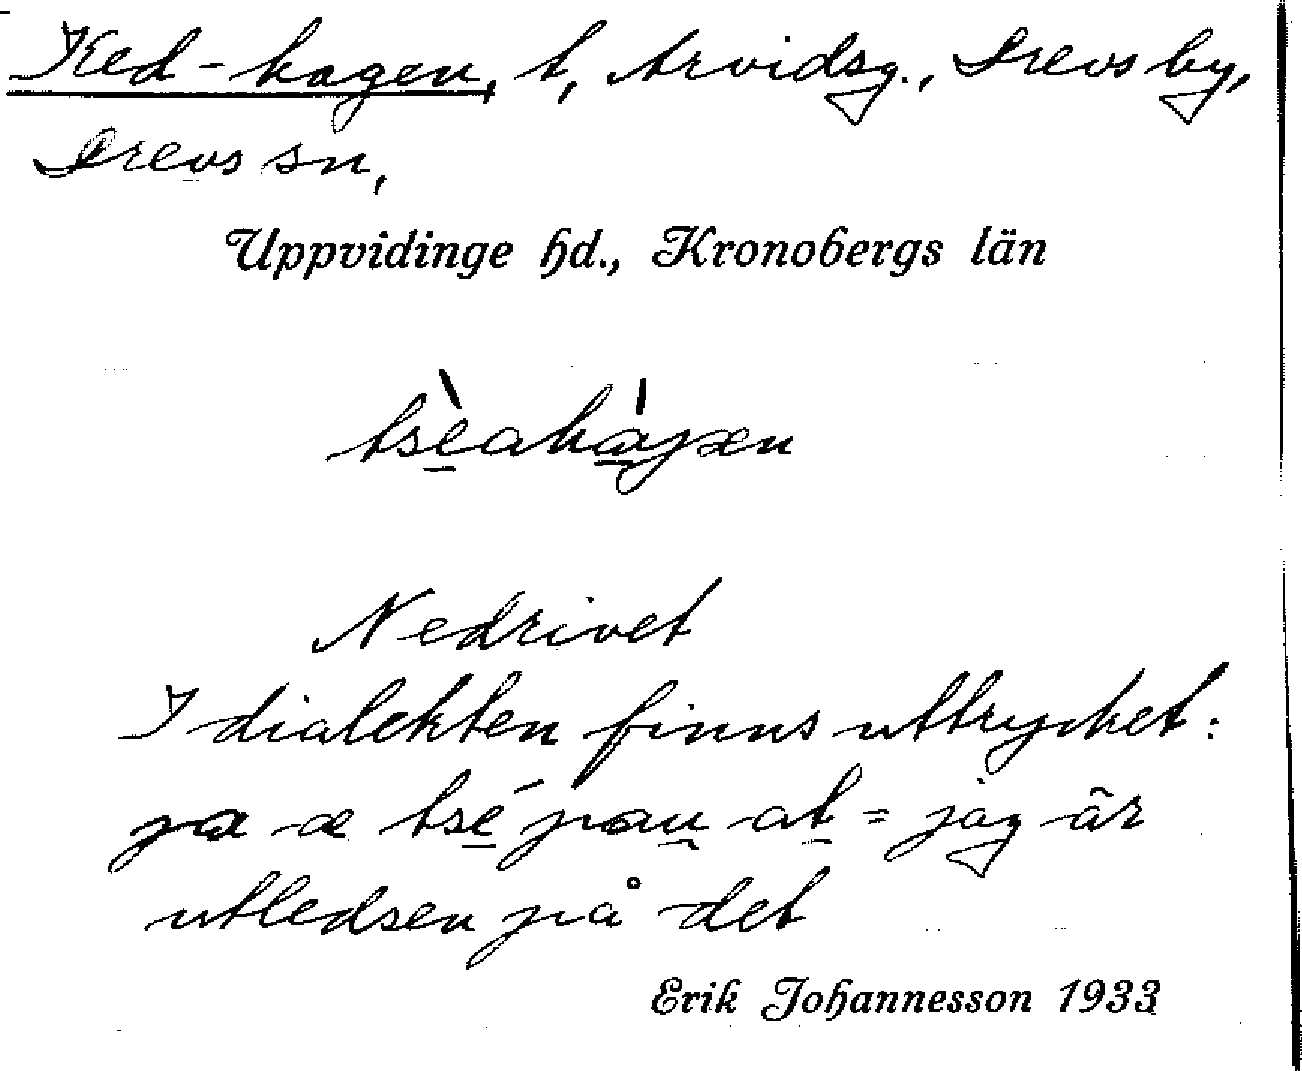 Ked-hagen, t, Arvidsg., Drevs by,
Drevs sn,
Uppvidinge hd., Kronobergs län
tsèahágen
Nedrivet
I dialekten finns uttrycket:
ja æ tsé pau at = jag är
utledsen på det
Erik Johannesson 1933